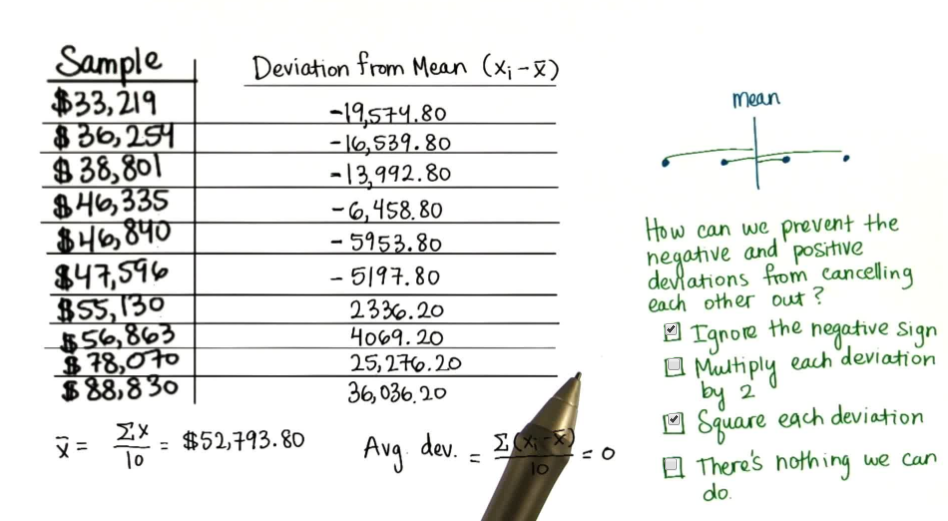 Sample
Deviation from Mean (xᵢ - x̄)
$33,219 -19,574.80
$36,254 -16,539.80
$38,801 -13,992.80
$46,335 -6,458.80
$46,840 -5953.80
$47,596 -5197.80
$55,130 2336.20
$56,863 4069.20
$78,070 25,276.20
$88,830 36,036.20
x̄ = Σx/10 = $52,793.80
Avg. dev. = Σ(xᵢ-x̄)/10 = 0
mean
How can we prevent the
negative and positive
deviations from cancelling
each other out?
☑ Ignore the negative sign
☐ Multiply each deviation
by 2
☑ Square each deviation
☐ There's nothing we can
do.